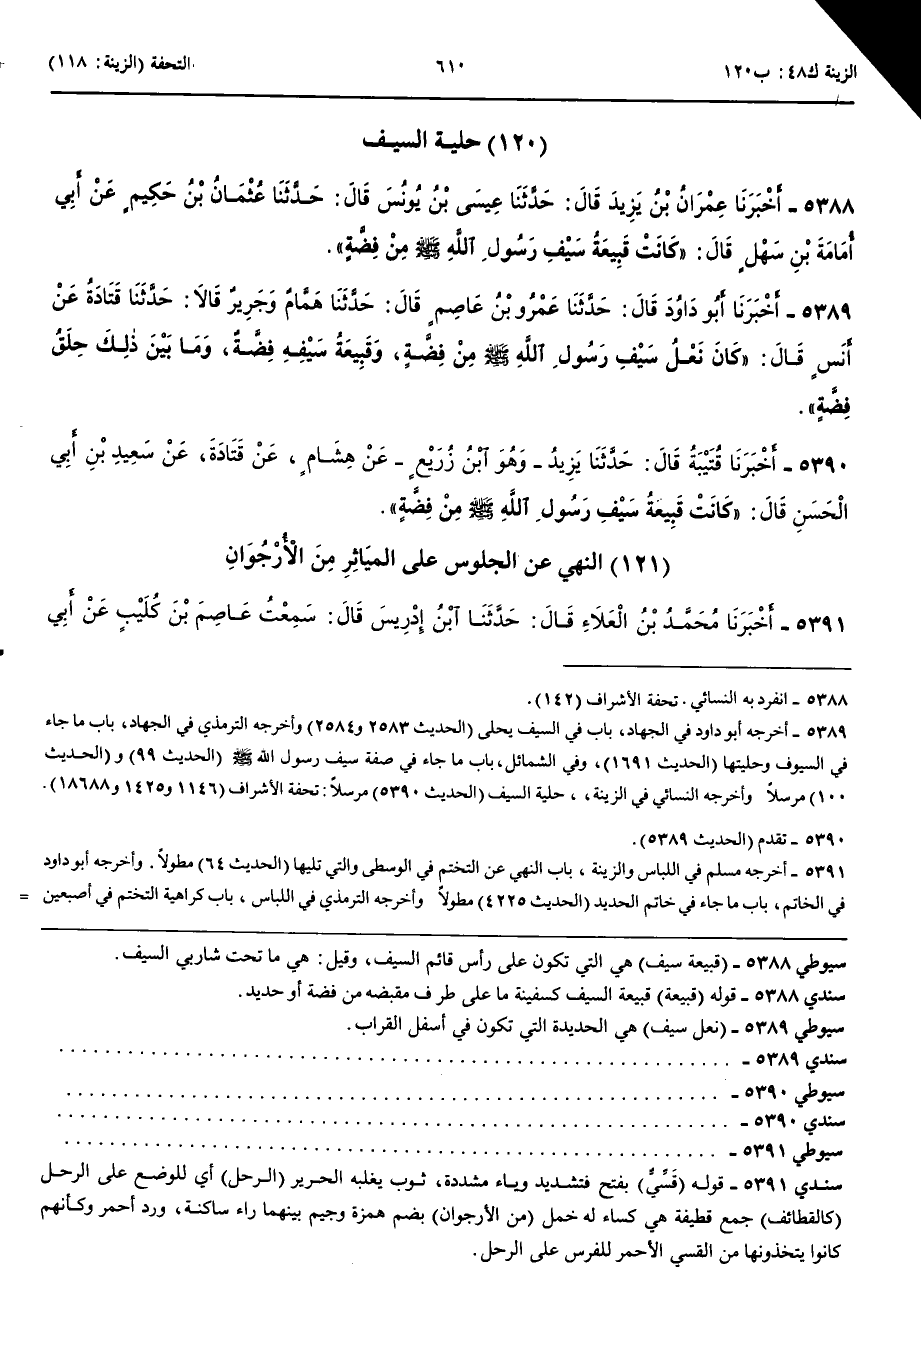 الزينة ك٤٨: ب١٢٠ ٦١٠ التحفة (الزينة: ١١٨)
(١٢٠) حلية السيف
٥٣٨٨ ـ أَخْبَرَنَا عِمْرَانُ بْنُ يَزِيدَ قَالَ: حَدَّثَنَا عِيسَى بْنُ يُونُسَ قَالَ: حَدَّثَنَا عُثْمَانُ بْنُ حَكِيمٍ عَنْ أَبِي
أُمَامَةَ بْنِ سَهْلٍ قَالَ: «كَانَتْ قَبِيعَةُ سَيْفِ رَسُولِ ٱللَّهِ ﷺ مِنْ فِضَّةٍ».
٥٣٨٩ ـ أَخْبَرَنَا أَبُو دَاوُدَ قَالَ: حَدَّثَنَا عَمْرُو بْنُ عَاصِمٍ قَالَ: حَدَّثَنَا هَمَّامٌ وَجَرِيرٌ قَالَا: حَدَّثَنَا قَتَادَةُ عَنْ
أَنَسٍ قَالَ: «كَانَ نَعْلُ سَيْفِ رَسُولِ ٱللَّهِ ﷺ مِنْ فِضَّةٍ، وَقَبِيعَةُ سَيْفِهِ فِضَّةٌ، وَمَا بَيْنَ ذٰلِكَ حِلَقُ
فِضَّةٍ».
٥٣٩٠ ـ أَخْبَرَنَا قُتَيْبَةُ قَالَ: حَدَّثَنَا يَزِيدُ ـ وَهُوَ ٱبْنُ زُرَيْعٍ ـ عَنْ هِشَامٍ، عَنْ قَتَادَةَ، عَنْ سَعِيدِ بْنِ أَبِي
الْحَسَنِ قَالَ: «كَانَتْ قَبِيعَةُ سَيْفِ رَسُولِ ٱللَّهِ ﷺ مِنْ فِضَّةٍ».
(١٢١) النهي عن الجلوس على المَيَاثِرِ مِنَ الْأُرْجُوَانِ
٥٣٩١ ـ أَخْبَرَنَا مُحَمَّدُ بْنُ الْعَلَاءِ قَالَ: حَدَّثَنَا ٱبْنُ إِدْرِيسَ قَالَ: سَمِعْتُ عَاصِمَ بْنَ كُلَيْبٍ عَنْ أَبِي
٥٣٨٨ ـ انفرد به النسائي. تحفة الأشراف (١٤٢).
٥٣٨٩ ـ أخرجه أبو داود في الجهاد، باب في السيف يحلى (الحديث ٢٥٨٣ و٢٥٨٤) وأخرجه الترمذي في الجهاد، باب ما جاء
في السيوف وحليتها (الحديث ١٦٩١)، وفي الشمائل، باب ما جاء في صفة سيف رسول الله ﷺ (الحديث ٩٩) و (الحديث
١٠٠) مرسلاً وأخرجه النسائي في الزينة، ، حلية السيف (الحديث ٥٣٩٠) مرسلاً: تحفة الأشراف (١١٤٦ و١٤٢٥ و١٨٦٨٨).
٥٣٩٠ ـ تقدم (الحديث ٥٣٨٩).
٥٣٩١ ـ أخرجه مسلم في اللباس والزينة، باب النهي عن التختم في الوسطى والتي تليها (الحديث ٦٤) مطولاً. وأخرجه أبو داود
في الخاتم، باب ما جاء في خاتم الحديد (الحديث ٤٢٢٥) مطولاً وأخرجه الترمذي في اللباس، باب كراهية التختم في أصبعين =
سيوطي ٥٣٨٨ ـ (قبيعة سيف) هي التي تكون على رأس قائم السيف، وقيل: هي ما تحت شاربي السيف.
سندي ٥٣٨٨ ـ قوله (قبيعة) قبيعة السيف كسفينة ما على طرف مقبضه من فضة أو حديد.
سيوطي ٥٣٨٩ ـ (نعل سيف) هي الحديدة التي تكون في أسفل القراب.
سندي ٥٣٨٩ ـ . . . . . . . . . . . . . . . . . . . .
سيوطي ٥٣٩٠ ـ . . . . . . . . . . . . . . . . . . . .
سندي ٥٣٩٠ ـ . . . . . . . . . . . . . . . . . . . .
سيوطي ٥٣٩١ ـ . . . . . . . . . . . . . . . . . . . .
سندي ٥٣٩١ ـ قوله (قَسِّيٌّ) بفتح فتشديد وياء مشددة، ثوب يغلبه الحرير (الرحل) أي للوضع على الرحل
(كالقطائف) جمع قطيفة هي كساء له خمل (من الأرجوان) بضم همزة وجيم بينهما راء ساكنة، ورد أحمر وكأنهم
كانوا يتخذونها من القسي الأحمر للفرس على الرحل.